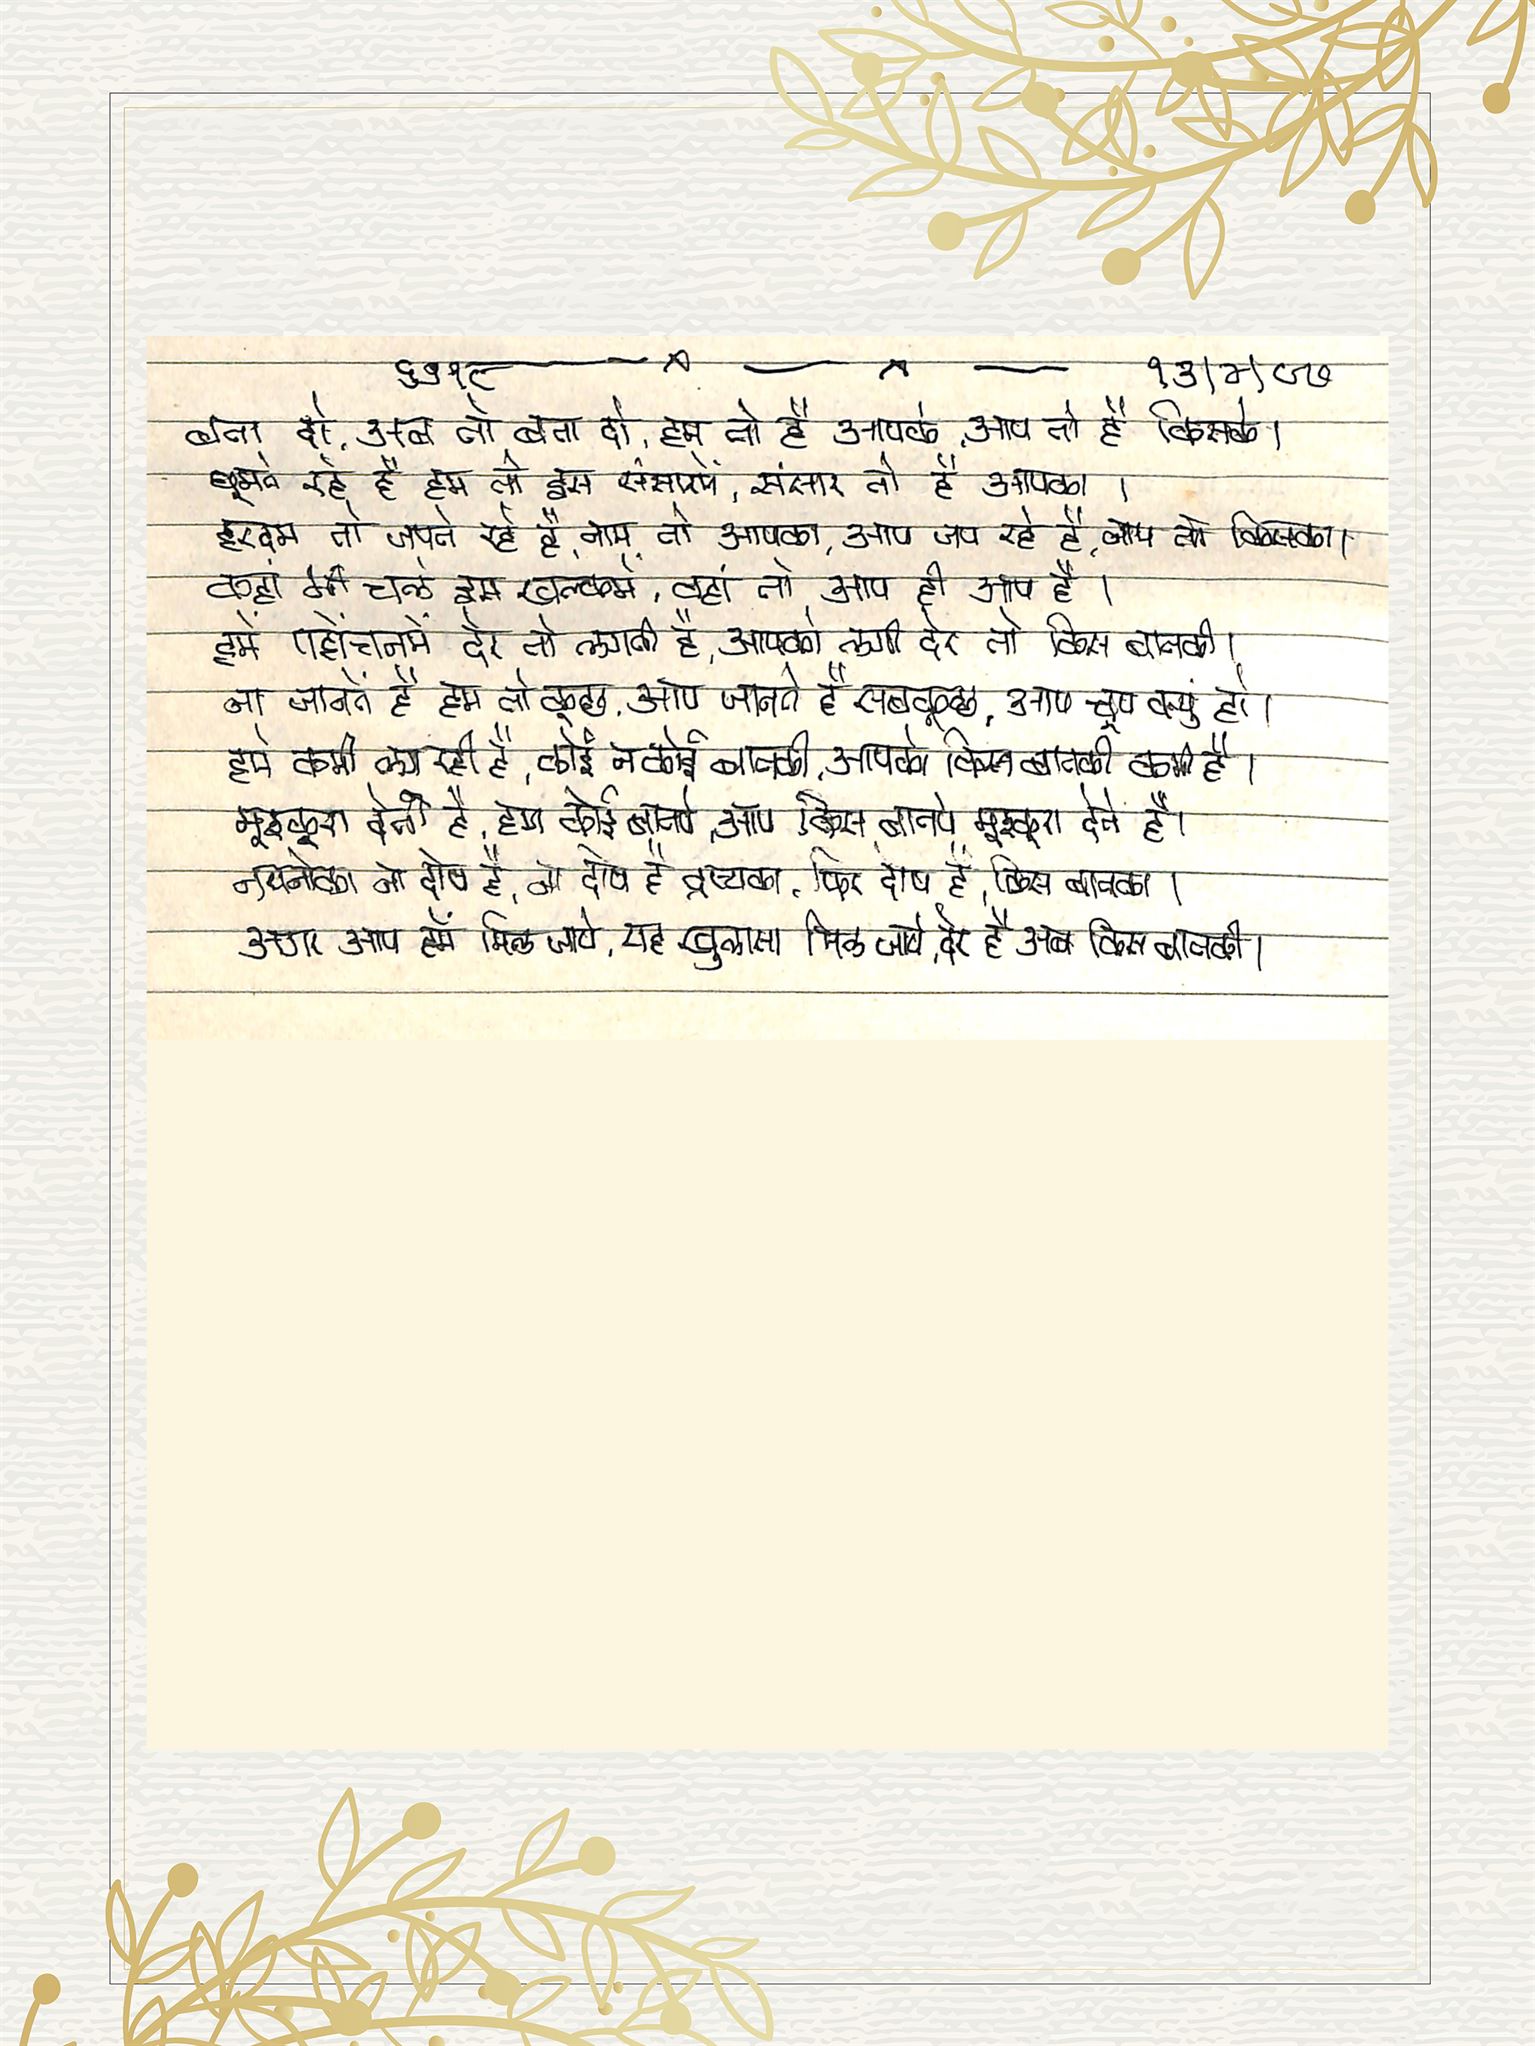 ६७१८ १३/म/८७
बता दो, अब तो बता दो, हम तो है आपके, आप तो है किसके।
घूमते रहे है हम तो इस संसारमें, संसार तो है आपका ।
हरदम तो जपते रहे है, नाम तो आपका, आप जप रहे है, जाप तो किसका।
कहां भी चले हम खल्कमें, वहां तो आप ही आप है ।
हमें पहोंचनमें देर तो लगती है, आपको लगी देर तो किस बातकी।
ना जानतें है हम तो कूछ, आप जानते है सबकूछ, आप चूप क्युं हो।
हमे कमी लग रही है, कोई न कोई बातकी, आपको किस बातकी कमी है ।
मूश्कूरा देते है, हम कोई बातपे, आप किस बातपे मूश्कूरा देते है।
नयनोका ना दोष है, ना दोष है द्रष्यका, फिर दोष है, किस बातका ।
अगर आप हमें मिल जाये, यह खुलासा मिल जाये, देर है अब किस बातकी।